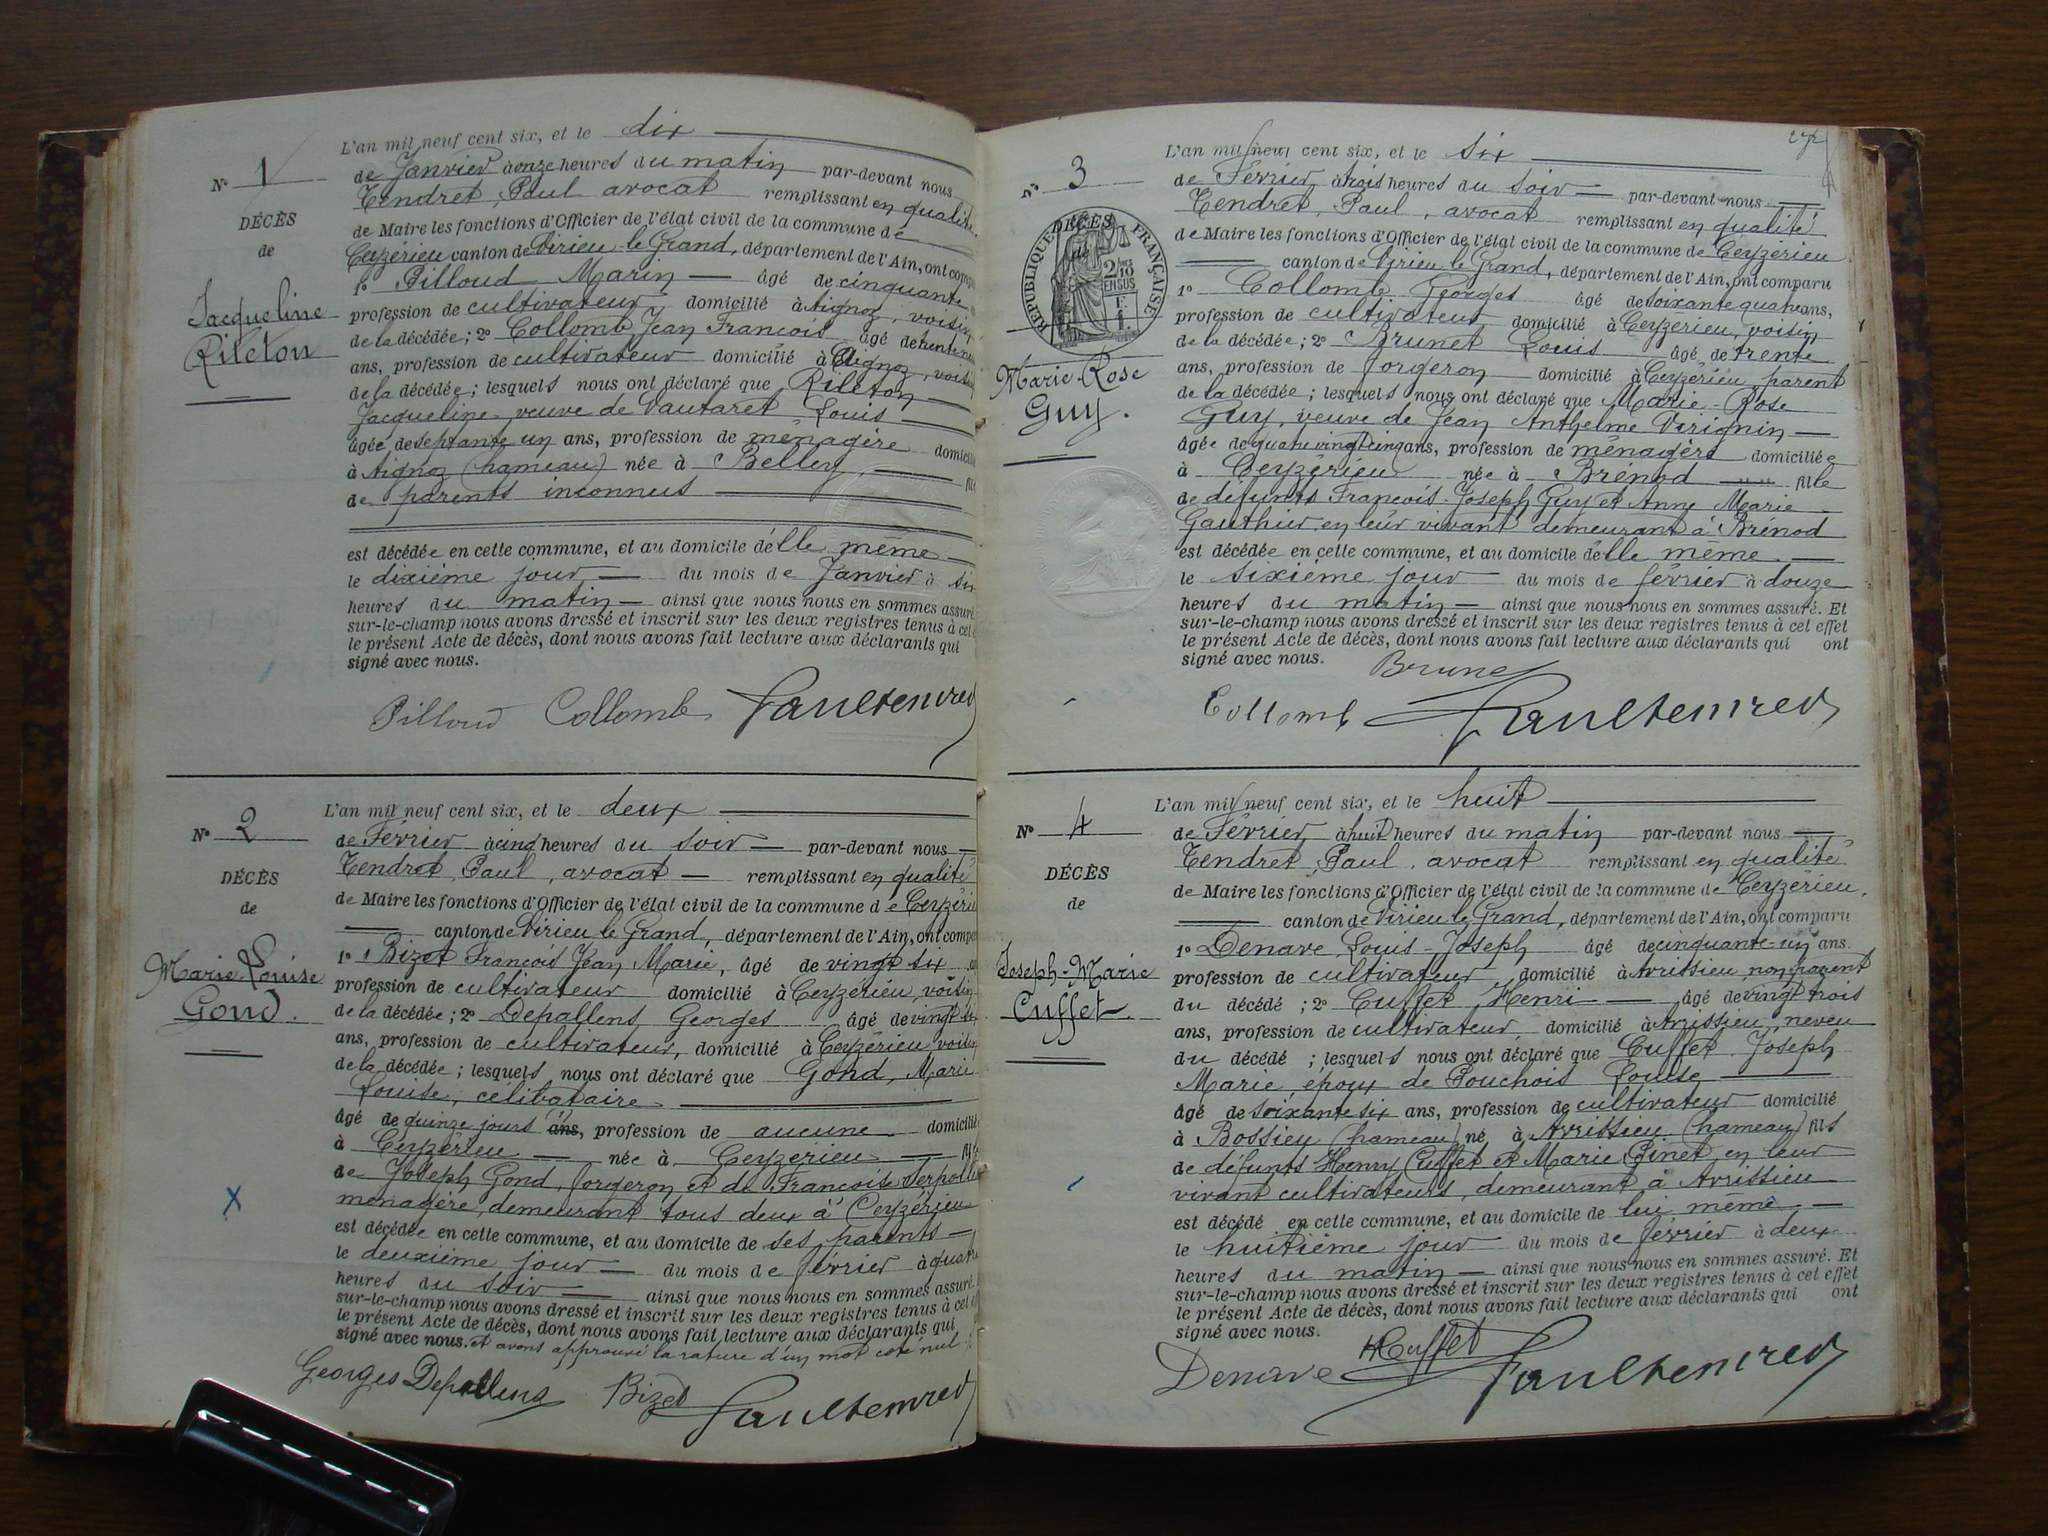 L'an mil neuf cent six, et le dix
de Janvier à onze heures du matin par-devant nous
Tendret, Paul avocat remplissant en qualité
de Maire les fonctions d'Officier de l'état civil de la commune de
Ceyzérieu canton de Virieu-le-Grand, département de l'Ain, ont comp
1o Pilloud Marin âgé de cinquante
profession de cultivateur domicilié à Aignoz, voisin
de la décédée; 2o Collomb Jean François âgé de
ans, profession de cultivateur domicilié à Aignoz, voisin
de la décédée; lesquels nous ont déclaré que Rileton
Jacqueline veuve de Vautaret Louis
âgée de septante un ans, profession de ménagère domicili
à Aignoz (hameau) née à Belley fil
de parents inconnus
est décédée en cette commune, et au domicile d'elle même
le dixième jour du mois de Janvier à six
heures du matin ainsi que nous nous en sommes assuré
sur-le-champ nous avons dressé et inscrit sur les deux registres tenus à cet e
le présent Acte de décès, dont nous avons fait lecture aux déclarants qui
signé avec nous.
Pilloud Collomb Paul Tendret
No 1
DÉCÈS
de
Jacqueline
Rileton
L'an mil neuf cent six, et le deux
de Février à cinq heures du soir par-devant nous
Tendret, Paul, avocat remplissant en qualité
de Maire les fonctions d'Officier de l'état civil de la commune de Ceyzérieu
canton de Virieu le Grand, département de l'Ain, ont compa
1o Bizet François Jean Marie, âgé de vingt six
profession de cultivateur domicilié à Ceyzérieu, voisin
de la décédée; 2o Depallens Georges âgé de vingt
ans, profession de cultivateur, domicilié à Ceyzérieu voisin
de la décédée; lesquels nous ont déclaré que Gond, Marie
Louise, célibataire
âgé de quinze jours ans, profession de aucune domicilié
à Ceyzérieu née à Ceyzerieu fil
de Joseph Gond, forgeron et de Françoise Serpol
ménagère, demeurant tous deux à Ceyzérieu
est décédée en cette commune, et au domicile de ses parents
le deuxième jour du mois de février à quatre
heures du soir ainsi que nous nous en sommes assuré.
sur-le-champ nous avons dressé et inscrit sur les deux registres tenus à cet e
le présent Acte de décès, dont nous avons fait lecture aux déclarants qui
signé avec nous. et avons approuvé la rature d'un mot coté nul
Georges Depallens Bizet Paul Tendret
No 2
DÉCÈS
de
Marie-Louise
Gond.
L'an mil neuf cent six, et le six
de Février à trois heures du soir par-devant nous
Tendret, Paul, avocat remplissant en qualité
de Maire les fonctions d'Officier de l'état civil de la commune de Ceyzérieu
canton de Virieu le Grand, département de l'Ain, ont comparu
1o Collomb Georges âgé de soixante quatre ans,
profession de cultivateur domicilié à Ceyzérieu, voisin
de la décédée; 2o Brunet Louis âgé de trente
ans, profession de forgeron domicilié à Ceyzérieu, parent
de la décédée; lesquels nous ont déclaré que Marie-Rose
Guy, veuve de Jean Anthelme Virignin
âgée de quatre vingt cinq ans, profession de ménagère domiciliée
à Ceyzérieu née à Brénod fille
de défunts François-Joseph Guy et Anne Marie
Gauthier en leur vivant demeurant à Brénod
est décédée en cette commune, et au domicile d'elle même
le sixième jour du mois de février à douze
heures du matin ainsi que nous nous en sommes assuré. Et
sur-le-champ nous avons dressé et inscrit sur les deux registres tenus à cet effet
le présent Acte de décès, dont nous avons fait lecture aux déclarants qui ont
signé avec nous.
Brunet
Collomb Paul Tendret
No 3
DÉCÈS
de
RÉPUBLIQUE FRANÇAISE
2/10 EN SUS
Marie-Rose
Guy.
L'an mil neuf cent six, et le huit
de Février à huit heures du matin par-devant nous
Tendret, Paul, avocat remplissant en qualité
de Maire les fonctions d'Officier de l'état civil de la commune de Ceyzérieu.
canton de Virieu le Grand, département de l'Ain, ont comparu
1o Denave Louis-Joseph âgé de cinquante-un ans.
profession de cultivateur domicilié à Avrissieu, non parent
du décédé; 2o Cuffet Henri âgé de vingt trois
ans, profession de cultivateur domicilié à Avrissieu, neveu
du décédé; lesquels nous ont déclaré que Cuffet Joseph
Marie, époux de Pouchois Louise
âgé de soixante six ans, profession de cultivateur domicilié
à Bossieu (hameau) né à Avrissieu (hameau) fils
de défunts Henry Cuffet et Marie Pinet en leur
vivant cultivateurs, demeurant à Avrissieu
est décédé en cette commune, et au domicile de lui même
le huitième jour du mois de février à deux
heures du matin ainsi que nous nous en sommes assuré. Et
sur-le-champ nous avons dressé et inscrit sur les deux registres tenus à cet effet
le présent Acte de décès, dont nous avons fait lecture aux déclarants qui ont
signé avec nous.
Denave HCuffet Paul Tendret
No 4
DÉCÈS
de
Joseph-Marie
Cuffet.